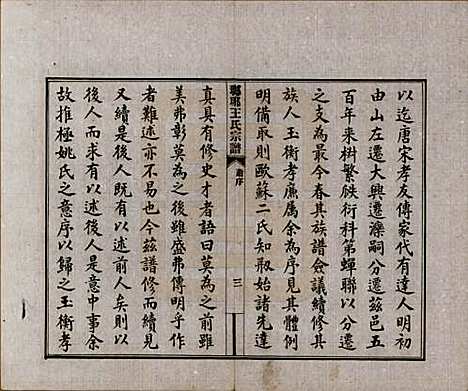 以迄唐宋孝友傳家代有達人明初
由山左遷大興遷濼嗣分遷茲邑五
百年來枓繁鉄衍科第蟬聯以分遷
之支為最今春其族譜僉議續修其
族人玉衡孝廉屬余為序見其體例
明備取則歐蘇二氏知剏始諸先達
瑯琊王氏宗譜
序
三
真具有修史才者語曰莫為之前雖
美弗彰莫為之後雖盛弗傳明乎作
者難述亦不易也今茲譜修而續見
又續是後人既有以述前人矣則以
後人而求有以述後人是意中事余
故推極姚氏之意序以歸之玉衡孝